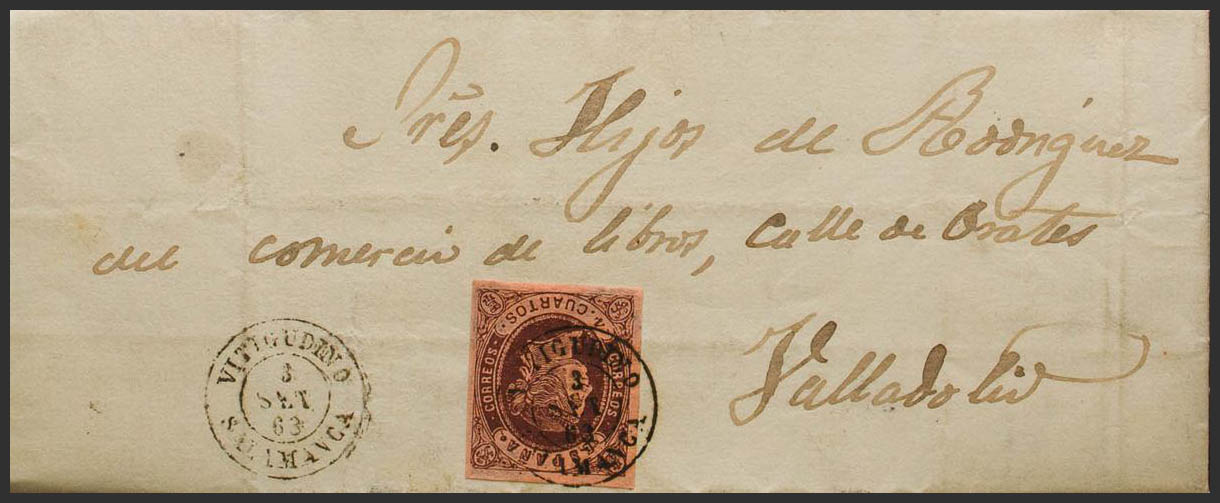 Sres. Hijos de Rodriguez
del comercio de libros, calle de Orates
Valladolid
VITIGUDINO
3
SET
63
SALAMANCA
CUARTOS.
CORREOS.
CORREOS.
ESPAÑA.
3
SET
63